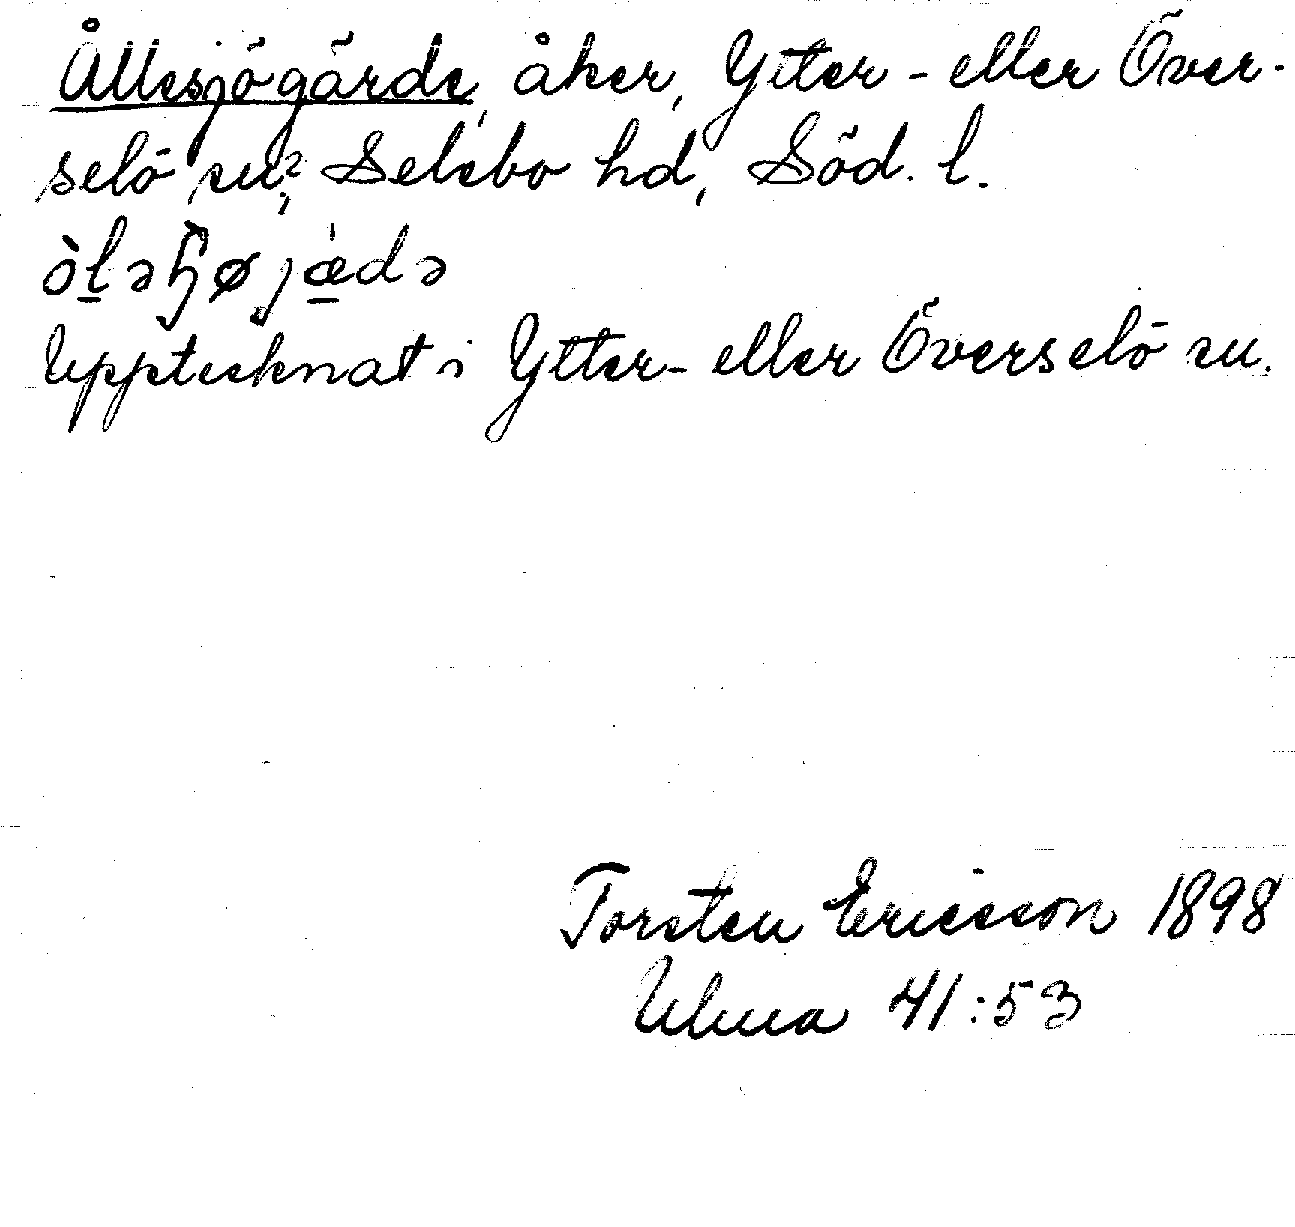 Ållesjögärde, åker, Ytter- eller Över-
selö sn?, Selebo hd, Söd. l.
Upptecknat i Ytter- eller Överselö sn.
Torsten Ericsson 1898
Ulma 41:53